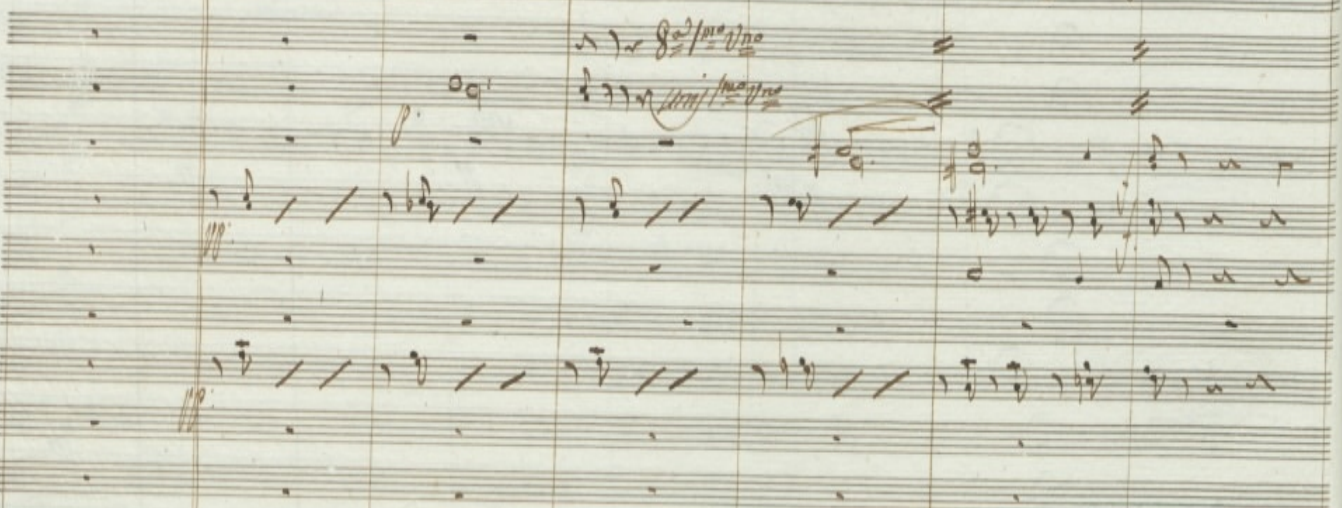 8ª Imo Vno
Unis Imo Vno
p.
pp.
pp.